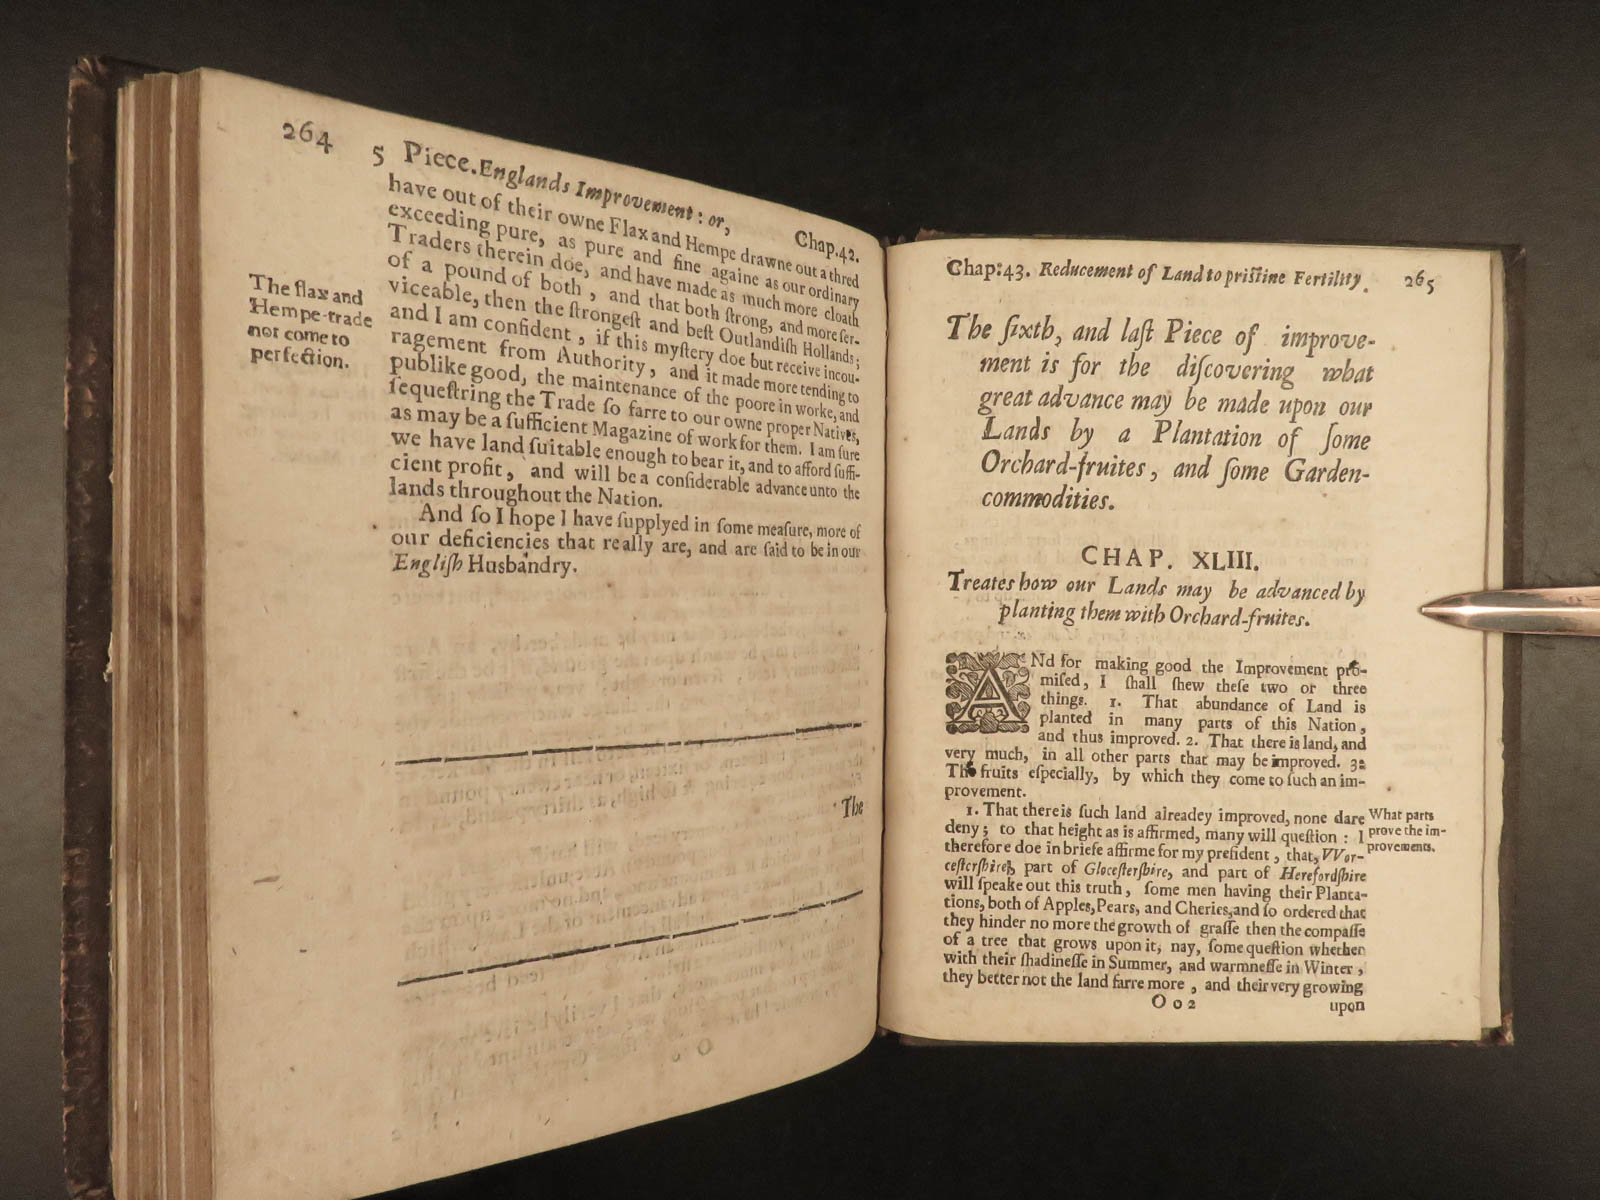 264
5 Piece. Englands Improvement : or,
Chap. 42.
have out of their owne Flax and Hempe drawne out a thred
exceeding pure, as pure and fine againe as our ordinary
Traders therein doe, and have made as much more cloath
of a pound of both , and that both ſtrong, and more ſer-
viceable, then the ſtrongeſt and beſt Outlandiſh Hollands;
and I am confident , if this myſtery doe but receive incou-
ragement from Authority, and it made more tending to
publike good, the maintenance of the poore in worke, and
ſequeſtring the Trade ſo farre to our owne proper Natives,
as may be a ſufficient Magazine of work for them. I am ſure
we have land ſuitable enough to bear it, and to afford ſuffi-
cient profit, and will be a conſiderable advance unto the
lands throughout the Nation.
And ſo I hope I have ſupplyed in ſome meaſure, more of
our deficiencies that really are, and are ſaid to be in our
Engliſh Husbandry.
The flax and
Hempe-trade
not come to
perfection.
The
Chap: 43. Reducement of Land to priſtine Fertility.
265
The ſixth, and laſt Piece of improve-
ment is for the diſcovering what
great advance may be made upon our
Lands by a Plantation of ſome
Orchard-fruites, and ſome Garden-
commodities.
CHAP. XLIII.
Treates how our Lands may be advanced by
planting them with Orchard-fruites.
ANd for making good the Improvement pro-
miſed, I ſhall ſhew theſe two or three
things. 1. That abundance of Land is
planted in many parts of this Nation,
and thus improved. 2. That there is land, and
very much, in all other parts that may be improved. 3:
The fruits eſpecially, by which they come to ſuch an im-
provement.
1. That there is ſuch land alreadey improved, none dare
deny; to that height as is affirmed, many will queſtion : I
therefore doe in briefe affirme for my preſident, that, VVor-
ceſterſhire, part of Gloceſterſhire, and part of Herefordſhire
will ſpeake out this truth, ſome men having their Planta-
tions, both of Apples, Pears, and Cheries, and ſo ordered that
they hinder no more the growth of graſſe then the compaſſe
of a tree that grows upon it, nay, ſome queſtion whether
with their ſhadineſſe in Summer, and warmneſſe in Winter ,
they better not the land farre more , and their very growing
What parts
prove the im-
provements.
O o 2
upon